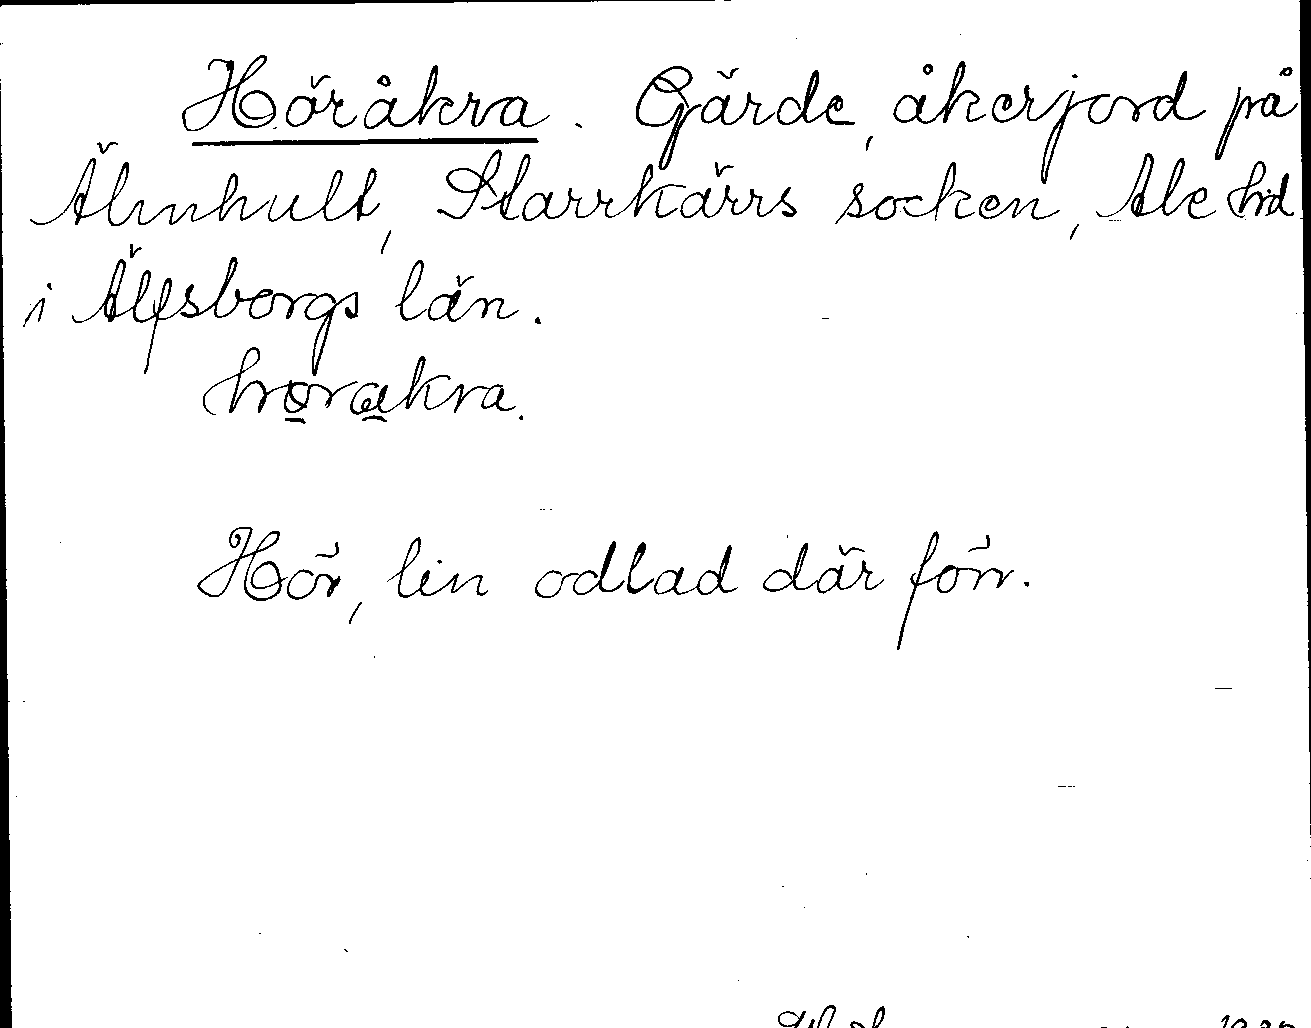 Höråkra. Gärde, åkerjord på
Älmhult, Starrkärrs socken, Ale hd
i Älfsborgs län.
hørakra.
Hör, lin odlad där förr.